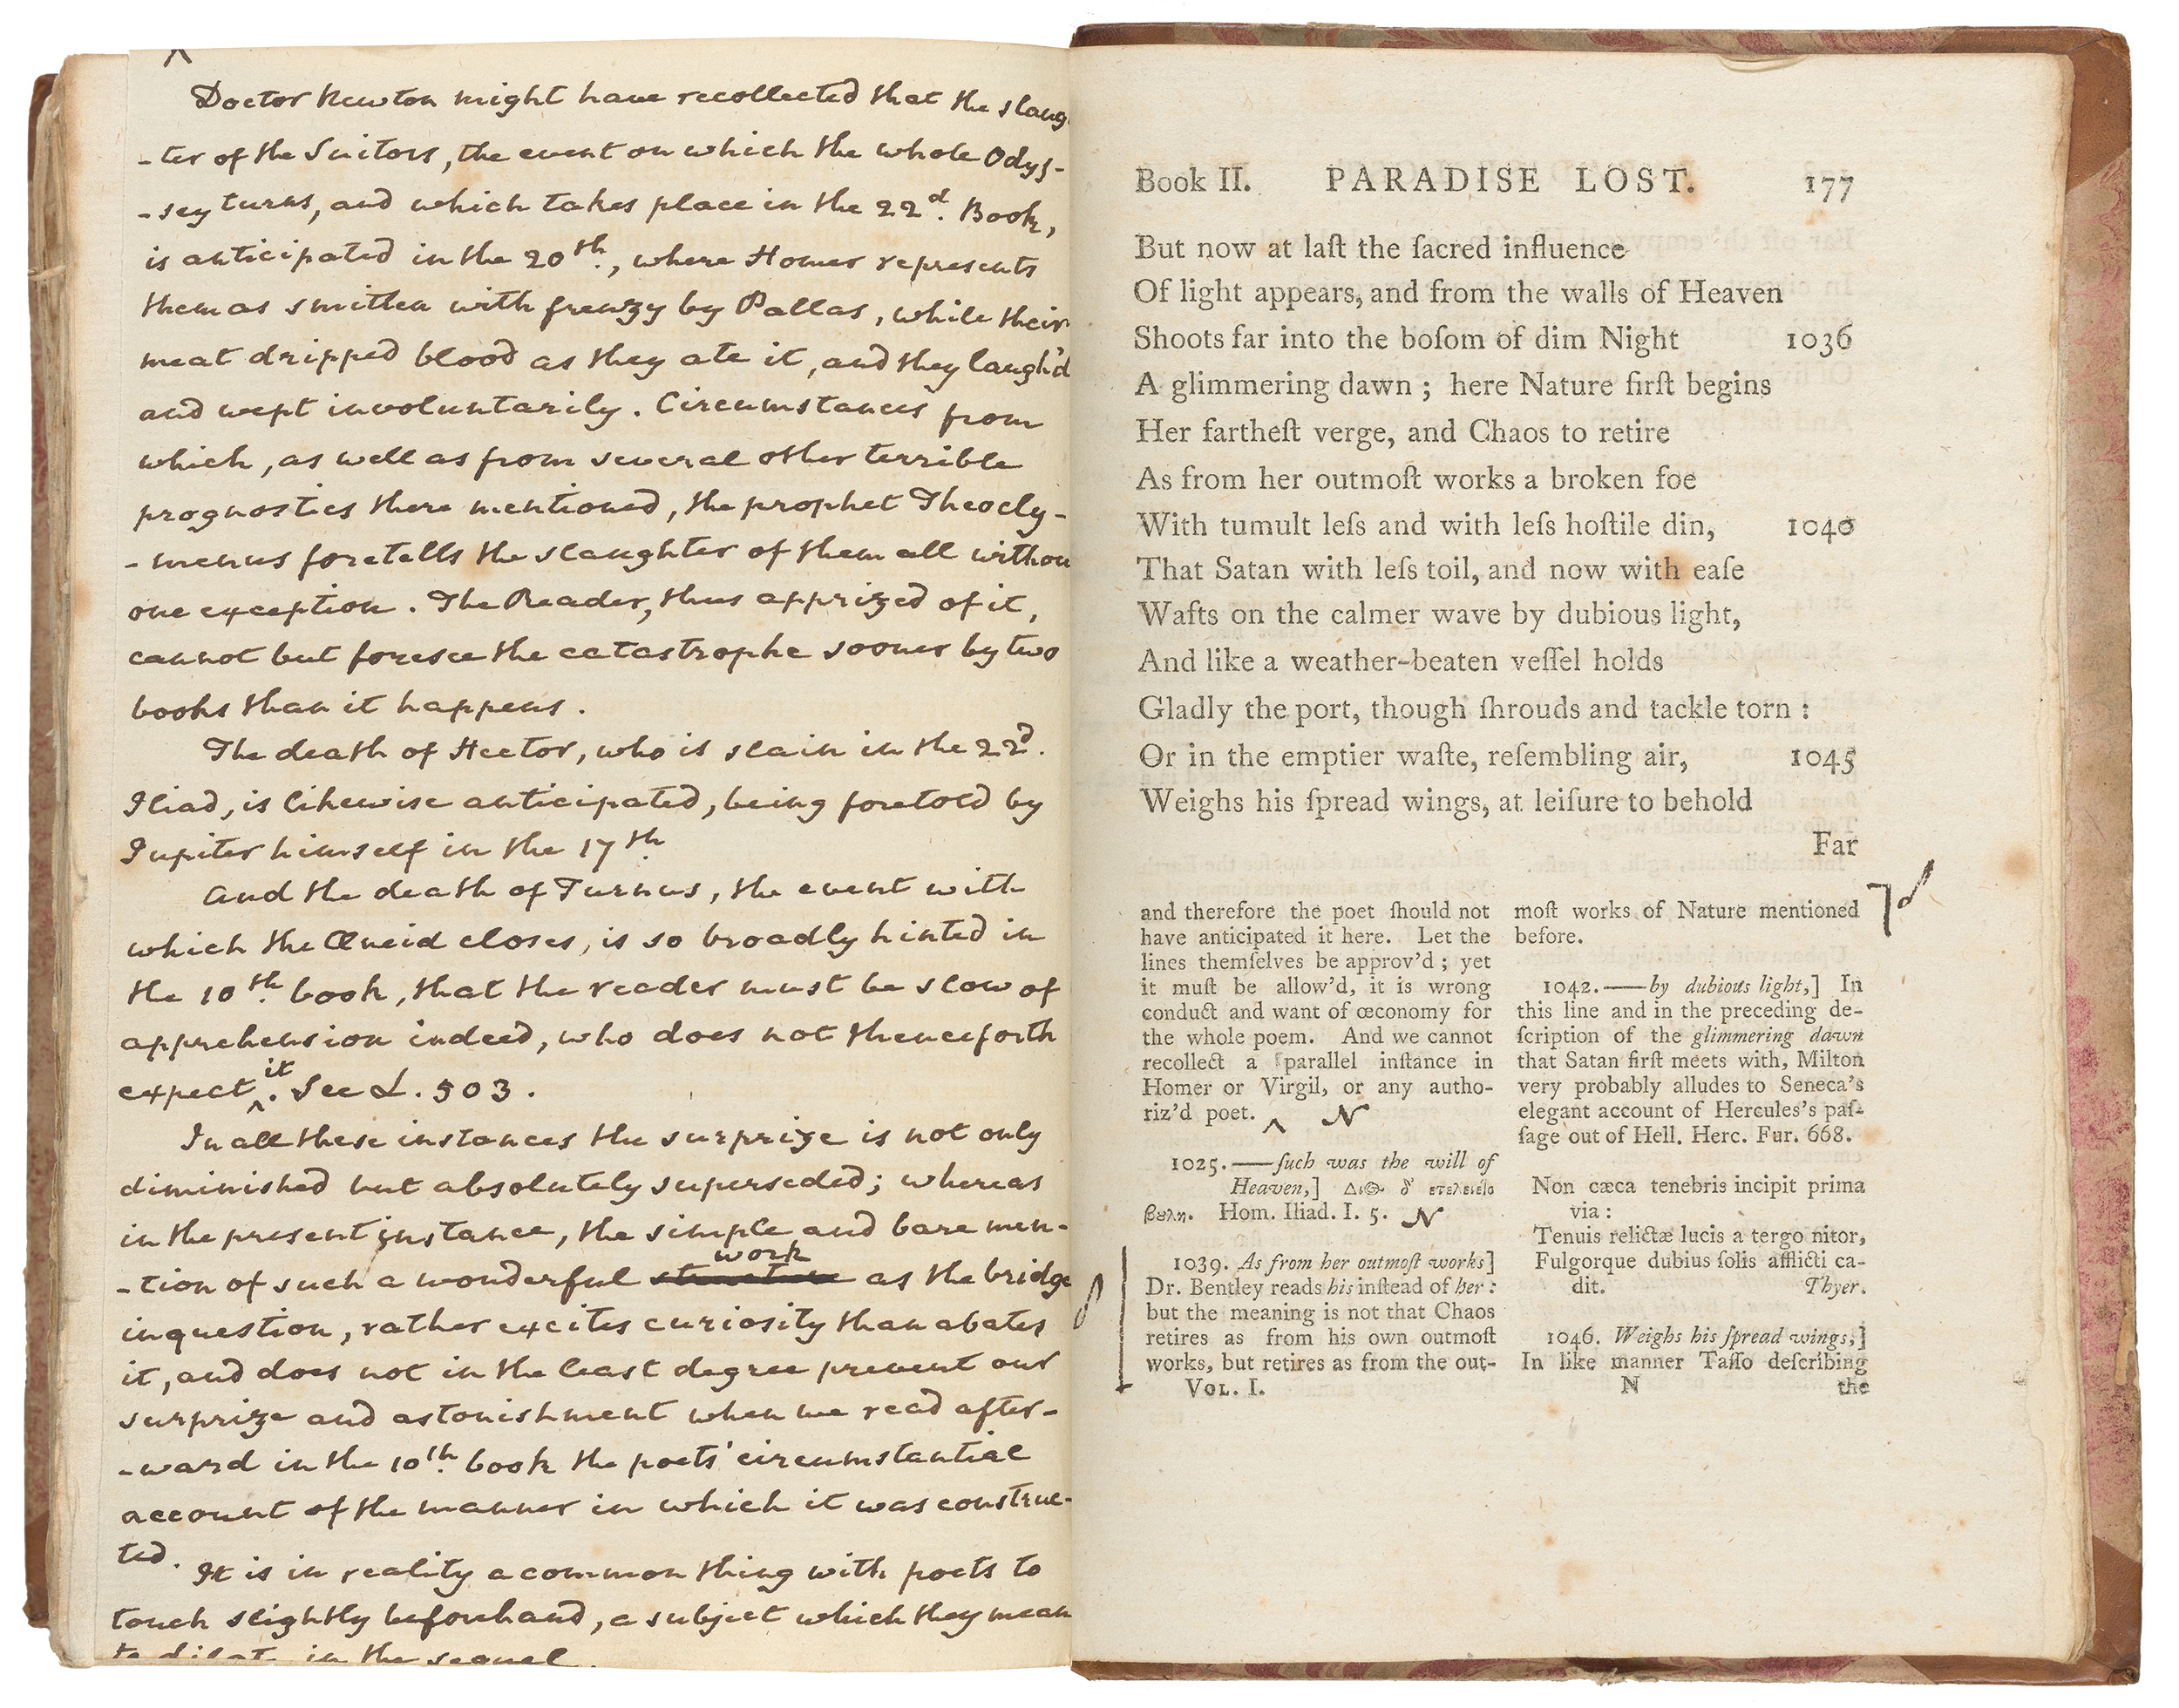 Doctor Newton might have recollected that the slaug
-ter of the Suitors, the event on which the whole Odys-
-sey turns, and which takes place in the 22d. Book,
is anticipated in the 20th., where Homer represents
them as smitten with frenzy by Pallas, while their
meat dripped blood as they ate it, and they laugh'd
and wept involuntarily. Circumstances from
which, as well as from several other terrible
prognostics there mentioned, the prophet Theocly-
-menus foretells the slaughter of them all withou
one exception. The Reader, thus apprized of it,
cannot but foresee the catastrophe sooner by two
books than it happens.
The death of Hector, who is slain in the 22d.
Iliad, is likewise anticipated, being foretold by
Jupiter himself in the 17th.
And the death of Turnus, the event with
which the Æneid closes, is so broadly hinted in
the 10th. book, that the reader must be slow of
apprehension indeed, who does not thenceforth
expect it. See L. 503.
In all these instances the surprize is not only
diminished but absolutely superseded; whereas
in the present instance, the simple and bare men-
-tion of such a wonderful structure work as the bridge
in question, rather excites curiosity than abates
it, and does not in the least degree prevent our
surprize and astonishment when we read after-
-ward in the 10th. book the poets' circumstantial
account of the manner in which it was construc-
ted.
It is in reality a common thing with poets to
touch slightly beforehand, a subject which they mean
to dilate in the sequel.
Book II. PARADISE LOST. 177
But now at laſt the ſacred influence
Of light appears, and from the walls of Heaven
Shoots far into the boſom of dim Night 1036
A glimmering dawn; here Nature firſt begins
Her fartheſt verge, and Chaos to retire
As from her outmoſt works a broken foe
With tumult leſs and with leſs hoſtile din, 1040
That Satan with leſs toil, and now with eaſe
Wafts on the calmer wave by dubious light,
And like a weather-beaten veſſel holds
Gladly the port, though ſhrouds and tackle torn:
Or in the emptier waſte, reſembling air, 1045
Weighs his ſpread wings, at leiſure to behold
Far
and therefore the poet ſhould not
have anticipated it here. Let the
lines themſelves be approv'd; yet
it muſt be allow'd, it is wrong
conduct and want of œconomy for
the whole poem. And we cannot
recollect a parallel inſtance in
Homer or Virgil, or any autho-
riz'd poet. N
1025.——ſuch was the will of
Heaven,] Διος δ' ετελειετο
βουλη. Hom. Iliad. I. 5. N
1039. As from her outmoſt works]
Dr. Bentley reads his inſtead of her:
but the meaning is not that Chaos
retires as from his own outmoſt
works, but retires as from the out-
moſt works of Nature mentioned
before.
1042.——by dubious light,] In
this line and in the preceding de-
ſcription of the glimmering dawn
that Satan firſt meets with, Milton
very probably alludes to Seneca's
elegant account of Hercules's paſ-
ſage out of Hell. Herc. Fur. 668.
Non cæca tenebris incipit prima
via:
Tenuis relictæ lucis a tergo nitor,
Fulgorque dubius ſolis afflicti ca-
dit. Thyer.
1046. Weighs his ſpread wings,]
In like manner Taſſo deſcribing
VOL. I. N the